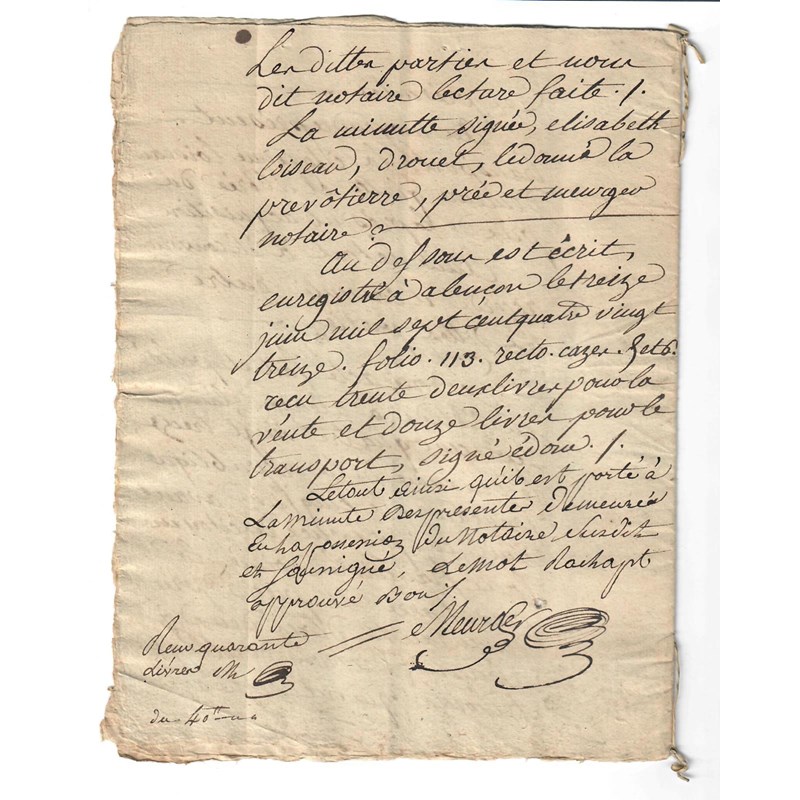 Les dittes parties et nous
dit notaire lecture faite ./.
La minutte signée, elisabeth
loiseau, drouet, ledonné la
prevôtierre, prée et meurger
notaire
Au dessous est écrit,
enregistré à alençon le treize
juin mil sept cent quatre vingt
treize . folio . 113 . recto . cazes . 5 et 6 .
recu trente deux livres pour la
vente et douze livres pour le
transport, signé édom ./.
Le tout ainsi qu'il est porté à
La minute des presentes demeurée
En la possession du Notaire Susdit
et Sousigné, Le mot Rachapt
approuvé Bon ./.
Meurger
Reçu quarante
Livres M
du 40ᵗᵗ